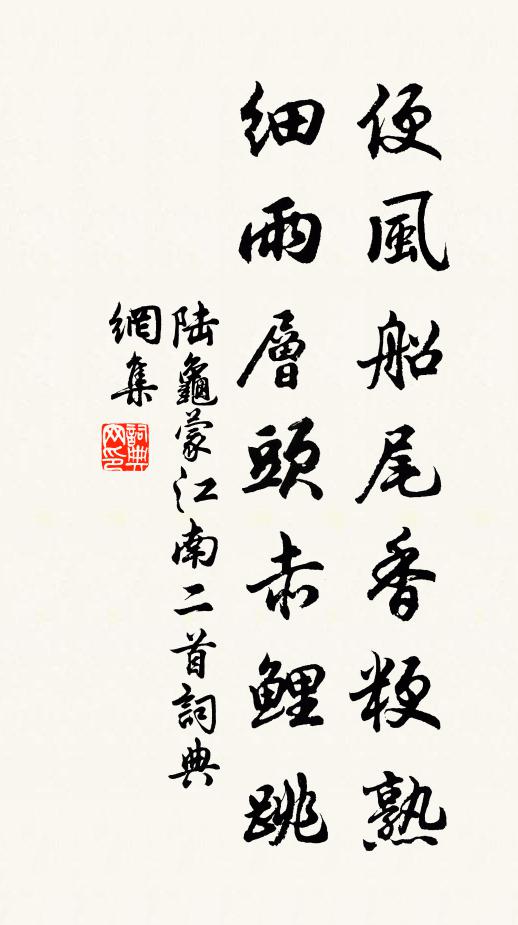 便風船尾香粳熟
細雨層頭赤鯉跳
陆龜蒙江南二首詞典
網集
詞典
网印